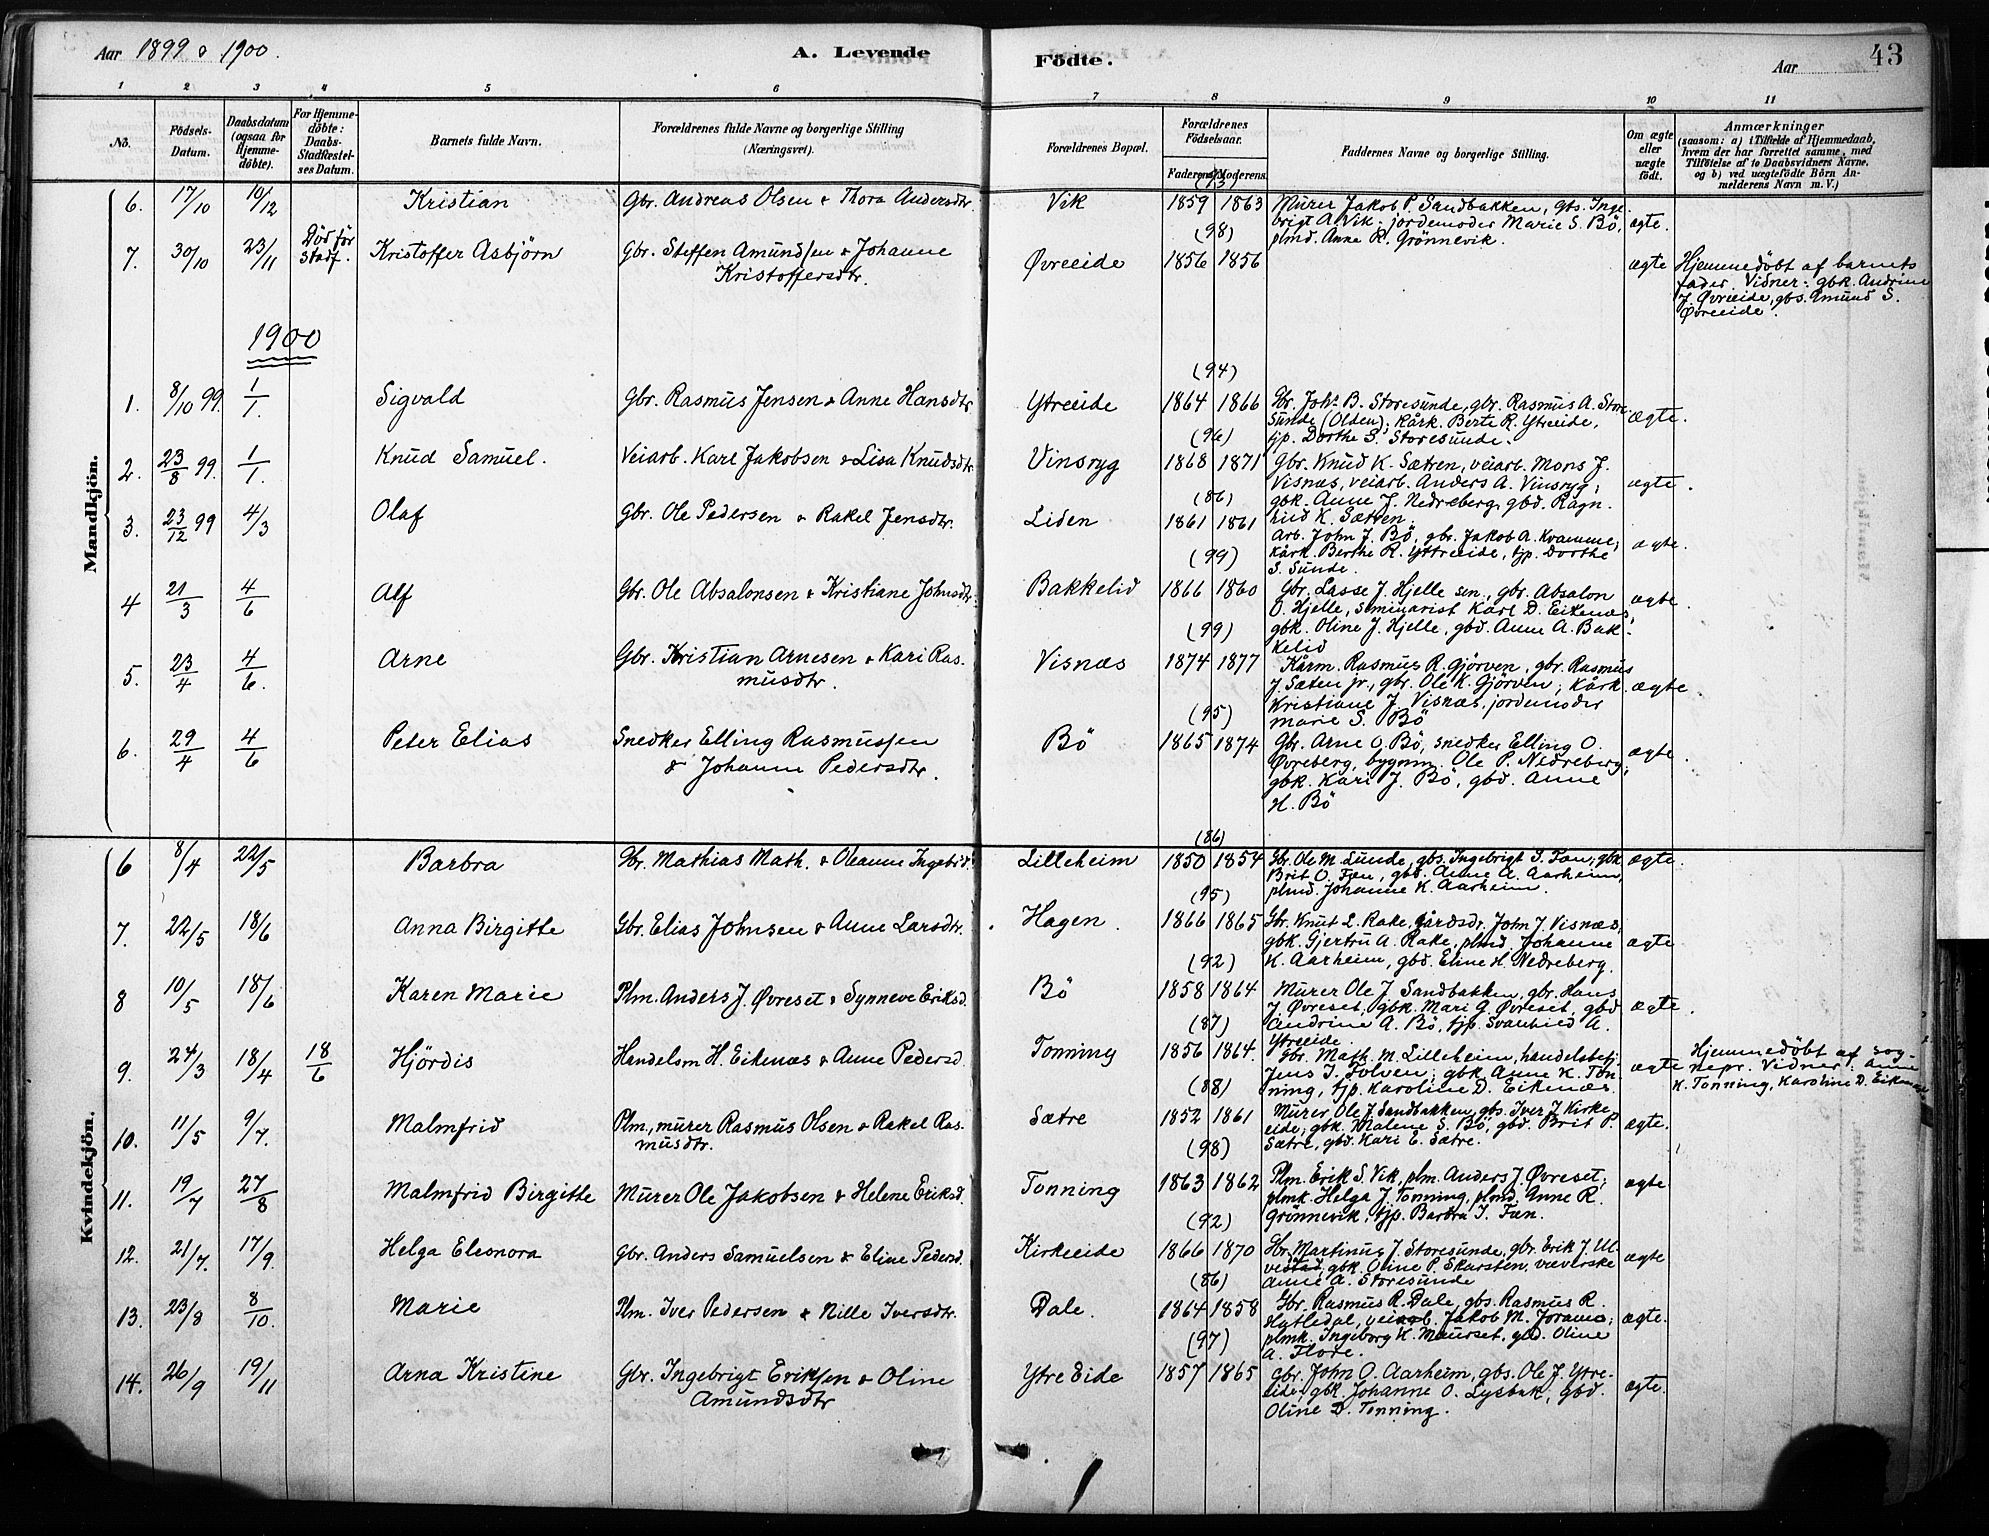 Aar 1899 & 1900.
A. Levende
Födte.
Aar
43
1 2 3 4 5 6 7 8 9 10 11
No.
Födsels-
Datum.
Daabsdatum
(ogsaa for
Hjemme-
döbte).
For Hjemme-
döbte:
Daabs-
Stadfæstel-
ses Datum.
Barnets fulde Navn.
Forældrenes fulde Navne og borgerlige Stilling
(Næringsvei).
Forældrenes Bopæl.
Forældrenes
Födselsaar.
Faderens. Moderens.
Faddernes Navne og borgerlige Stilling.
Om ægte
eller
uægte
födt.
Anmærkninger
(saasom: a) i Tilfælde af Hjemmedaab,
hvem der har forrettet samme, med
Tilföielse af to Daabsvidners Navne,
og b) ved uægtefödte Börn An-
melderens Navn m. V.)
Mandkjön.
6. 17/10 10/12 Kristian Gbr. Andreas Olsen & Thora Andersdtr. Vik 1859 1863 Murer Jakob P. Sandbakken, gbs. Inge-
brigt A. Vik; jordemoder Marie S. Bö, ægte.
(98) plmd. Anna R. Grönnevik.
7. 30/10 23/11 Död för
Stadf. Kristoffer Asbjörn Gbr. Steffen Amundsen & Johanne
Kristoffersdtr. Øvreeide 1856 1856 ægte Hjemmedöbt af barnets
fader. Vidner: gbk. Andrine
J. Øvreeide, gbs. Amund S.
Øvreeide.
1900
(94)
1. 8/10 99. 1/1. Sigvald Gbr. Rasmus Jensen & Anne Hansdtr. Ytreeide 1864 1866 Gbr. Johs. B. Storesunde, gbr. Rasmus A. Store-
sunde (Olden); kårk. Berte R. Ytreeide, ægte.
(96) tjp. Dorthe S. Storesunde.
2. 23/8 99. 1/1. Knud Samuel. Veiarb. Karl Jakobsen & Lisa Knudsdtr. Vinsryg 1868 1871 Gbr. Knud K. Sætren, veiarb. Mons J.
Visnæs, veiarb. Anders A. Vinsryg; ægte.
(86) gbk. Anne J. Nedreberg, gbd. Ragn-
hild K. Sætren.
3. 23/12 99 4/3 Olaf Gbr. Ole Pedersen & Rakel Jensdtr. Liden 1861 1861
Arb. John J. Bö, gbr. Jakob A. Kvamme;
(99) kårk. Berthe R. Yttreeide, tjp. Dorthe ægte.
S. Sunde.
4 21/3 4/6 Alf Gbr. Ole Absalonsen & Kristiane Johnsdtr. Bakkelid 1866 1860 Gbr. Lasse J. Hjelle sen., gbr. Absalon
O. Hjelle, seminarist Karl D. Eikenæs, ægte.
(99) gbk. Oline J. Hjelle, gbd. Anne A. Bak-
kelid
5. 23/4 4/6. Arne Gbr. Kristian Arnesen & Kari Ras-
musdtr. Visnæs 1874 1877 Kårm. Rasmus R. Gjörven, gbr. Rasmus
J. Sæten jr., gbr. Ole K. Gjörven; kårk. ægte
Kristiane J. Visnæs, jordemoder
(95) Marie S. Bö
6. 29/4 4/6 Peter Elias Snedker Elling Rasmussen
& Johanne Pedersdtr. Bö 1865 1874 Gbr. Arne O. Bö, snedker Elling O.
Øvreberg, bygmm. Ole P. Nedreberg; ægte.
gbk. Kari J. Bö, gbd. Anne
H. Bö
Kvindekjön.
(86)
6 8/4 22/5 Barbra Gbr. Mathias Math. & Oleanne Ingebrd. Lilleheim 1850 1854 Gbr. Ole M. Sunde, gbs. Ingebrigt I. Fæn; gbk. ægte.
Brit O. Fæn, gbd. Anne A. Aarheim,
(95) plmd. Johanne K. Aarheim.
7. 22/5 18/6 Anna Birgitte Gbr. Elias Johnsen & Anne Larsdtr. Hagen. 1866 1865 Gbr. Knut L. Rake, gårdsdr. John J. Visnæs,
gbk. Gjertru A. Rake, plmd. Johanne ægte
(92) K. Aarheim, gbd. Eline H. Nedreberg.
8 10/5 18/6 Karen Marie Plm. Anders J. Øvreset & Synneve Eriksd. Bö 1858 1864 Murer Ole J. Sandbakken, gbr. Hans
J. Øvreset, gbk. Mari G. Øvreset, gbd. ægte.
(87) Andrine A. Bö, tjp. Svanhild A.
Ytreeide.
9. 24/3 18/4 18/6 Hjördis Handelsm H. Eikenæs & Anne Pedersd. Tonning 1856 1864. Gbr. Math. M. Lilleheim, handelsbetj.
Jens I. Folven; gbk. Anne K. Ton- ægte
(88) ning, tjp. Karoline D. Eikenæs.
Hjemmedöbt af sog-
nepr. Vidner: Anne
K. Tonning, Karoline D. Eikenæs
10. 11/5 9/7. Malmfrid Plm., murer Rasmus Olsen & Rakel Ras-
musdtr. Sætre 1852 1861 Murer Ole J. Sandbakken, gbs. Iver J. Kirke-
eide; gbk. Malene S. Bö, gbd. Brit P. ægte.
(98) Sætre, gbd. Kari E. Sætre.
11. 19/7 27/8 Malmfrid Birgitte Murer Ole Jakobsen & Helene Eriksd. Tonning 1863 1862 Plm. Erik S. Vik, plm. Anders J. Øvreset;
plmk. Helga J. Tonning, plmd. Anne R. ægte
(92) Grönnevik, tjp. Barbra I. Fæn.
12. 21/7. 17/9. Helga Eleonora Gbr. Anders Samuelsen & Eline Pedersd. Kirkeeide 1866 1870 Gbr. Martinus J. Storesunde, gbr. Erik J. Ul-
vestad; gbk. Oline P. Skarsten, væverske ægte
(86) Anne A. Storesunde
13. 23/8 8/10. Marie Plm. Iver Pedersen & Nille Iversdtr. Dale. 1864 1858 Gbr. Rasmus R. Dale, gbs. Rasmus R.
Hatledal, veiarb. Jakob M. Joramo; ægte.
(97) plmk. Ingeborg K. Maurset, gbd. Oline
A. Flore.
14. 26/9 19/11 Arna Kristine Gbr. Ingebrigt Eriksen & Oline
Amundsdtr Ytre Eide 1857 1865 Gbr. John O. Aarheim, gbs. Ole J. Ytre-
eide; gbk. Johanne O. Lysbak, gbd. ægte.
Oline D. Tonning.